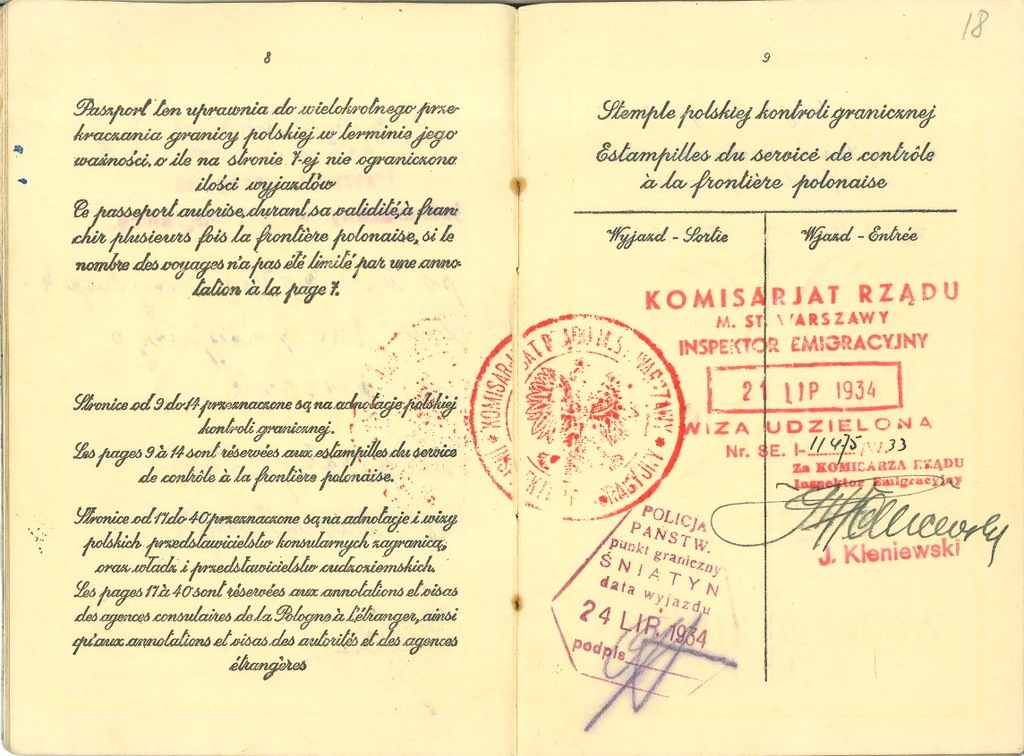 8
Paszport ten uprawnia do wielokrotnego prze-
kraczania granicy polskiej w terminie jego
ważności, o ile na stronie 7-ej nie ograniczono
ilości wyjazdów
Ce passeport autorise, durant sa validité, à fran-
chir plusieurs fois la frontière polonaise, si le
nombre des voyages n'a pas été limité par une anno-
tation à la page 7.
Stronice od 9 do 14 przeznaczone są na adnotacje polskiej
kontroli granicznej.
Les pages 9 à 14 sont réservées aux estampilles du service
de contrôle à la frontière polonaise.
Stronice od 17 do 40 przeznaczone są na adnotacje i wizy
polskich przedstawicielstw konsularnych zagranicą,
oraz władz i przedstawicielstw cudzoziemskich.
Les pages 17 à 40 sont réservées aux annotations et visas
des agences consulaires de la Pologne à l'étranger, ainsi
qu'aux annotations et visas des autorités et des agences
étrangères
18
9
Stemple polskiej kontroli granicznej
Estampilles du service de contrôle
à la frontière polonaise
Wyjazd - Sortie
Wjazd - Entrée
KOMISARJAT RZĄDU
M. ST. WARSZAWY
INSPEKTOR EMIGRACYJNY
21 LIP 1934
WIZA UDZIELONA
Nr. SE. I-11475 33
Za KOMISARZA RZĄDU
Inspektor Emigracyjny
J. Kleniewski
KOMISARJAT WARSZAWY
POLICJA
PAŃSTW.
punkt graniczny
ŚNIATYN
data wyjazdu
24 LIP. 1934
podpis